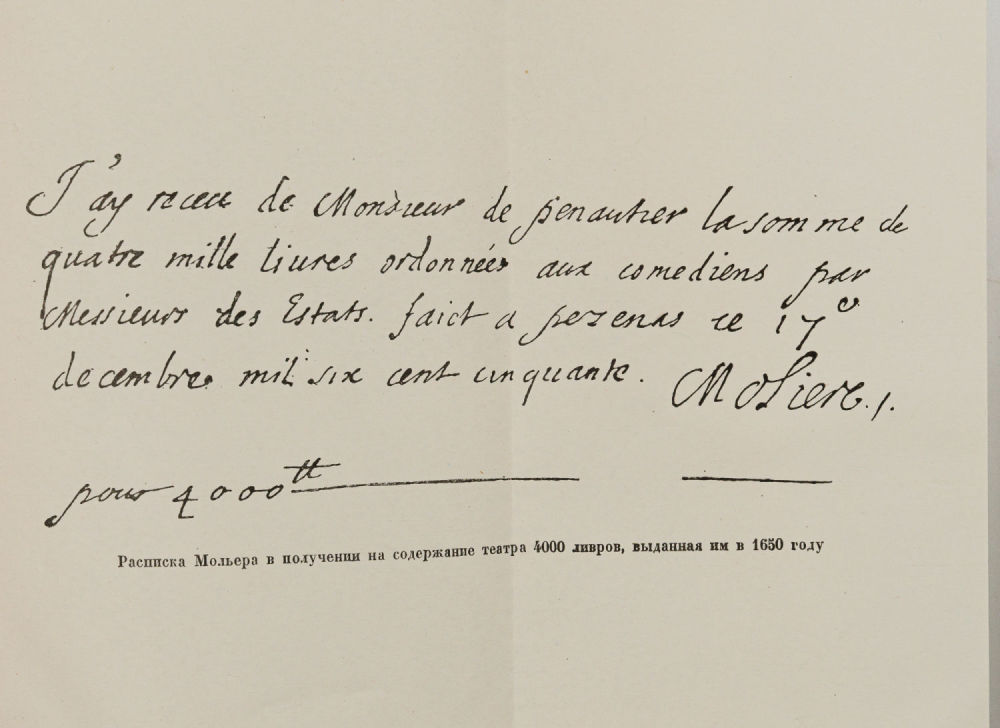 J'ay receu de Monsieur de penautier la somme de
quatre mille liures ordonnées aux comediens par
Messieurs des Estats. faict a pezenas ce 17e
decembre mil six cent cinquante. Moliere./.
pour 4000tt
Расписка Мольера в получении на содержание театра 4000 ливров, выданная им в 1650 году